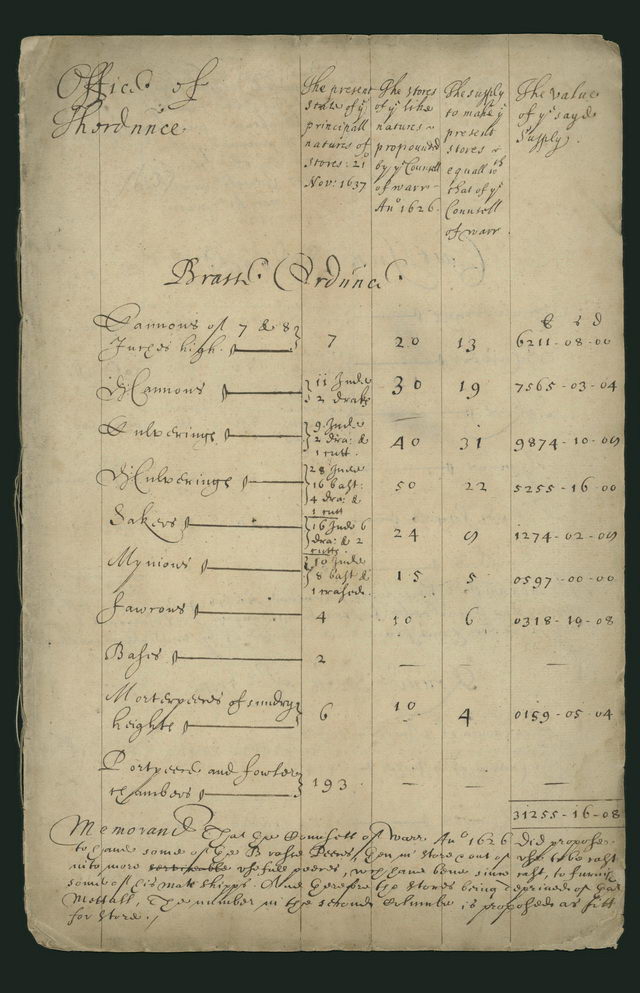 Office of
Thordnnce
The present
state of yͤ
principall
natures of
stores: 21o
Nov: 1637
The stores
of yͤ like
natures
propounded
by yͤ Counsell
of warr
Anᵒ 1626.
The supply
to make yͤ
present
stores
equall wᵗʰ
that of yͤ
Counsell
of warr
The value
of yͤ sayd
Supply.
Brasse Ordnnce.
£ s d
Cannons of 7 & 8
Inches high. 7 20 13 6211-08-00
Dj Cannons 11 Inde 2 drake 30 19 7565-03-04
Culverings 9 Inde 2 dra: & 1 cutt. 40 31 9874-10-09
Dj Culverings 28 Inde 16 bast: 4 dra: & 1 cutt 50 22 5255-16-00
Sakers 16 Inde 6 dra: & 2 cutts. 24 9 1274-02-09
Mynions 10 Inde 8 bast & 1 crased. 15 5 0597-00-00
Fawcons 4 10 6 0318-19-08
Bases 2 — — —
Morterpeeces of sundry
heights 6 10 4 0159-05-04
Portpeece and fowler
chambers 193 — — —
31255-16-08
Memorand That the Counsell of Warr Anᵒ 1626 did propose
to have some of the Brasse Peeces, then in store out of use to be cast
into more usefull peeces, wᶜʰ have bene since cast, to furnish
some of his Maᵗˢ shipps. And therefore the stores being deprived of that
Mettall, The number in the second Columbe is proposed as fitt
for store.